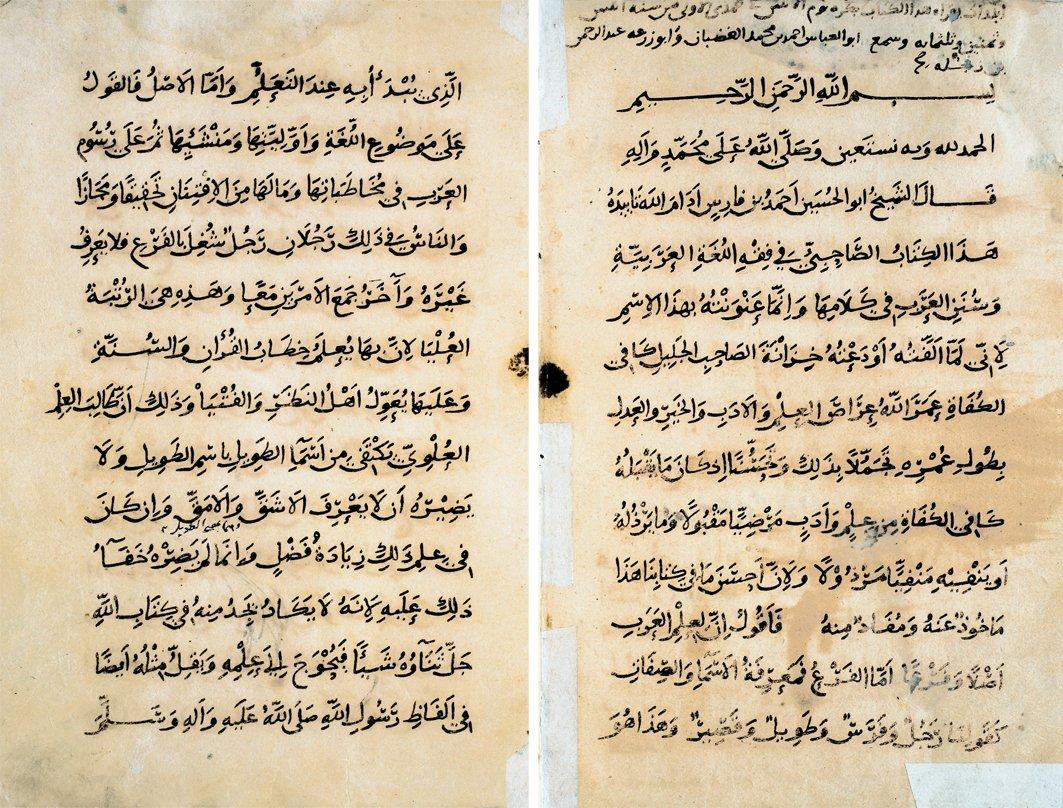 ابتدات بقراه هذا الكتاب بكره يوم الاثنين جمدى الاولى من سنة اثنتين
وثمنين وثلثمايه وسمع ابو العباس احمد بن محمد الغضبان وابو زرعه عبد الرحمن
بن زنجله
بسم الله الرحمن الرحيم
الحمد لله وبه نستعين وصلى الله على محمد وآله
قال الشيخ ابو الحسين أحمد بن فارس أدام الله تاييده
هذا الكتاب الصاحبي في فقه اللغة العربية
وسنن العرب في كلامها وإنما عنونته بهذا الاسم
لأني لما ألفته أودعته خزانة الصاحب الجليل كافي
الكفاة عمر الله عراص العلم والأدب والخير والعدل
بطول عمره تجملا بذلك وتحسنا إذ كان ما يقبله
كافي الكفاة من علم وأدب مرضيا مقبولا وما يرذله
أو ينفيه منفيا مرذولا ولأن أحسن ما في كتابنا هذا
ماخوذ عنه ومفاد منه فأقول إن لعلم العرب
أصلا وفرعا أما الفرع فمعرفة الأسما والصفات
كقولنا رجل وفرس وطويل وقصير وهذا هو
الذي يبدأ به عند التعلم وأما الأصل فالقول
على موضوع اللغة وأوليتها ومنشئها ثم على رسوم
العرب في مخاطباتها وما لها من الافتنان تحقيقا ومجازا
والناس في ذلك رجلان رجل شغل بالفرع فلا يعرف
غيره وآخر جمع الأمرين معا وهذه هي الرتبة
العليا لأن بها يعلم خطاب القرآن والسنة
وعليها يعول أهل النظر والفتيا وذلك أن طالب العلم
العلوي يكتفي من أسما الطويل باسم الطويل ولا
يضيره أن لا يعرف الأشق والأمق وإن كان
هما بمعنى الطويل
في علم ذلك زيادة فضل وانما لم يضره خفآء
ذلك عليه لأنه لا يكاد يجد منه في كتاب الله
جل ثناؤه شيئا فيحوج إلى علمه ويقل مثله أيضا
في ألفاظ رسول الله صلى الله عليه وآله وسلم